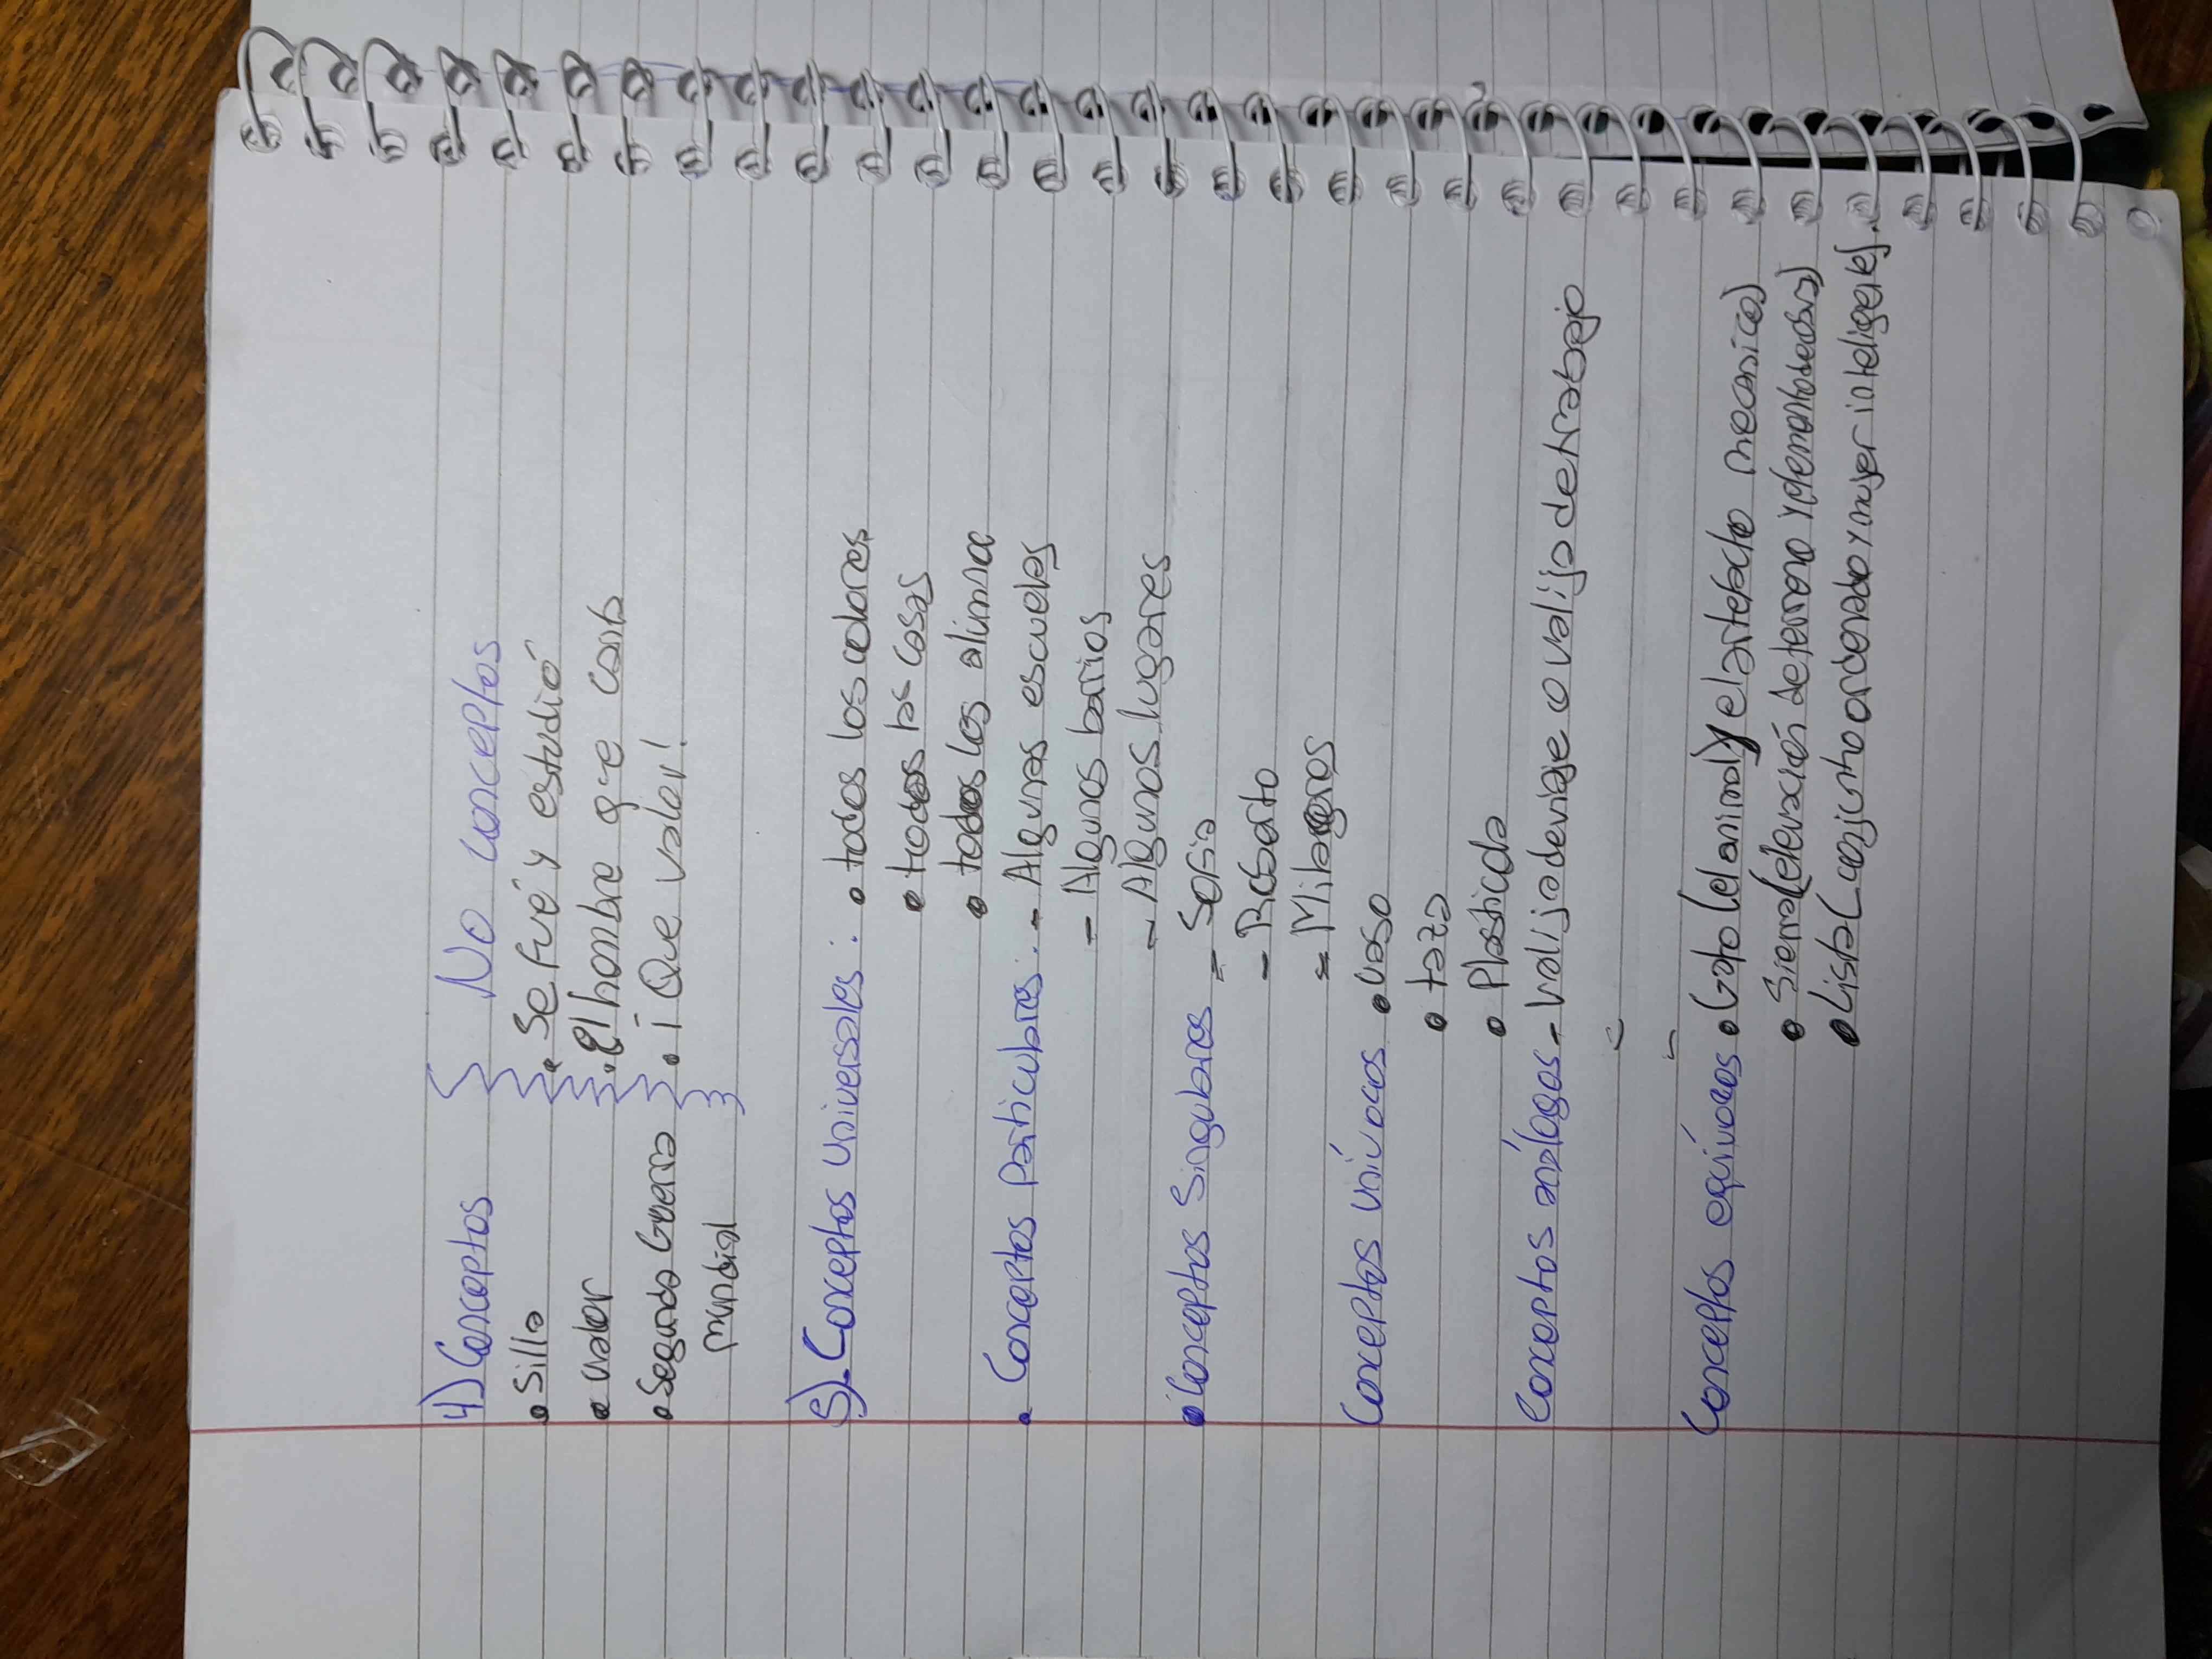 4) Conceptos No conceptos
• Silla • Se fué y estudió
• valor • El hombre que canta
• Segunda Guerra • ¡Que valor!
mundial
5) Conceptos Universales: • todos los colores
• todas las cosas
• todos los alumnos
• Conceptos Particulares: - Algunas escuelas
- Algunos barrios
- Algunos lugares
• Conceptos Singulares - Sofia
- Rosario
- Milagros
Conceptos Unívocos • vaso
• taza
• Plasticola
Conceptos análogos - valija de viaje o valija de trabajo
-
-
Conceptos equívocos • Gato (el animal) y el artefacto mecanico)
• Sierra (elevación de terreno y
• Lista (conjunto ordenado y mujer inteligente).